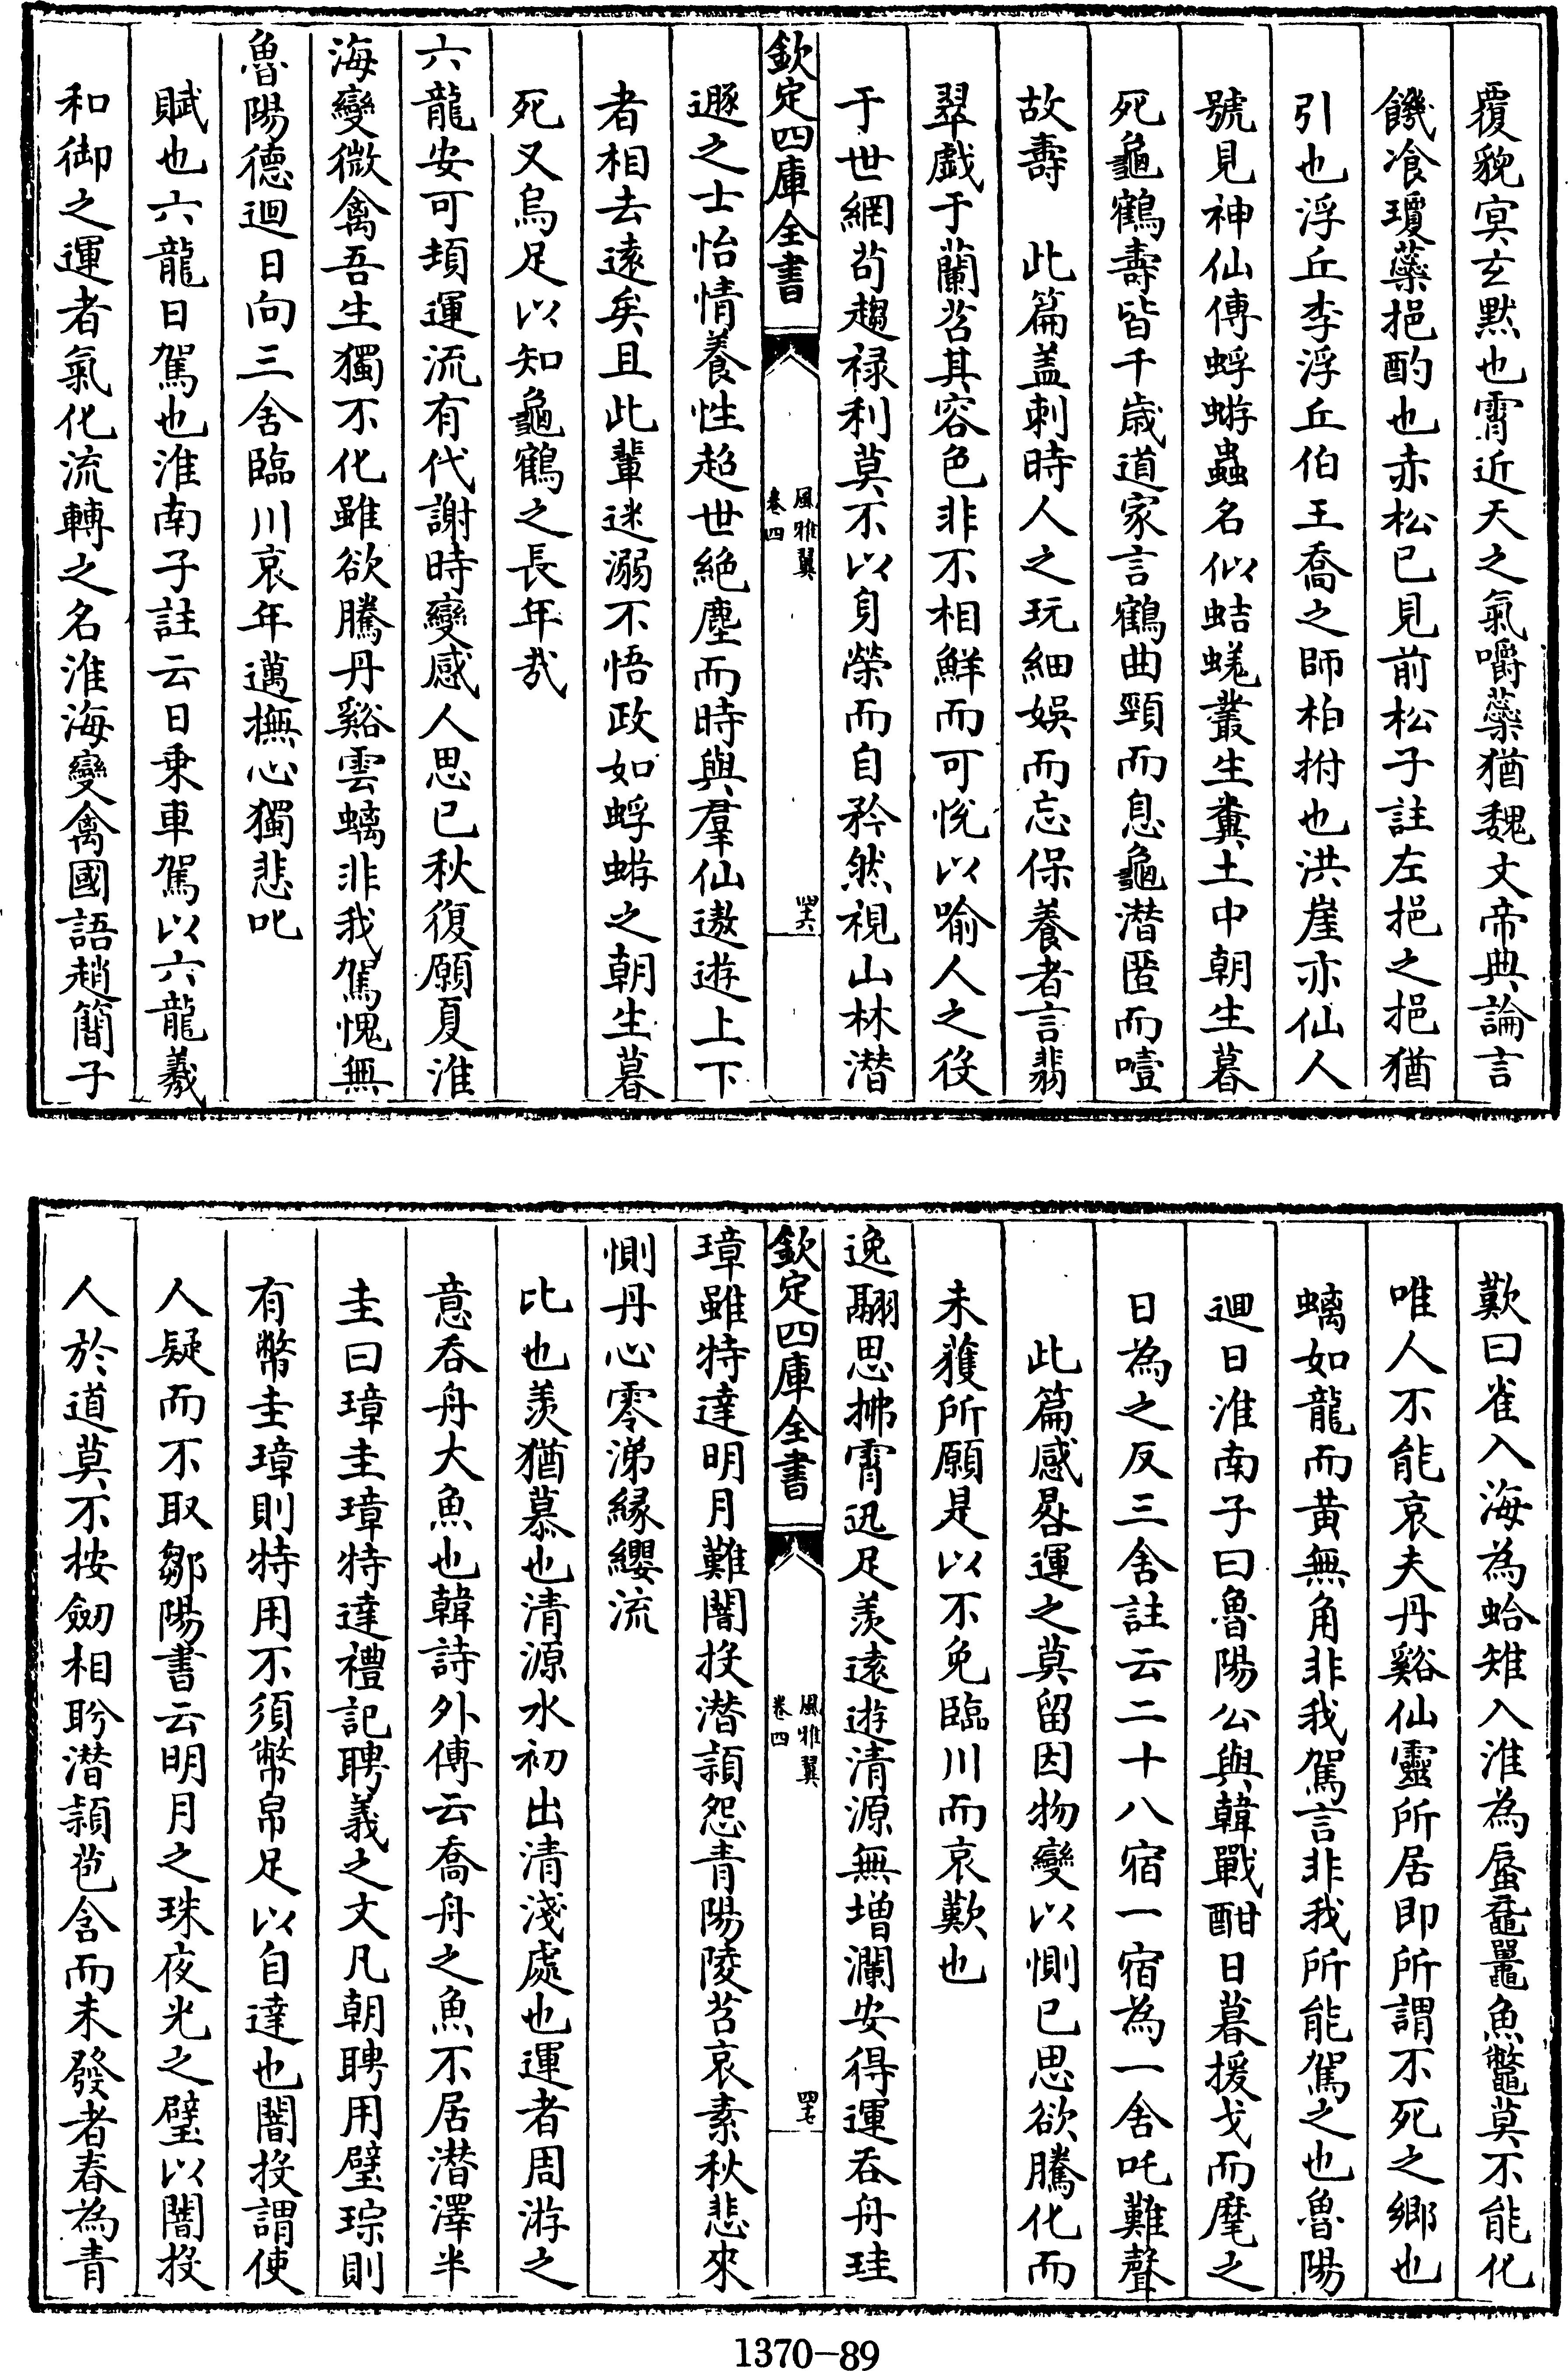 覆貌㝠玄黙也霄近天之氣嚼蘂猶魏文帝典論言
饑飡瓊蘂挹酌也赤松已見前松子註左挹之挹猶
引也浮丘李浮丘伯王喬之師柏拊也洪崖亦仙人
號見神仙傳蜉蝣蟲名似蛣蜣叢生糞土中朝生暮
死龜鶴壽皆千歳道家言鶴曲頸而息龜潜匿而噎
故壽　此篇盖刺時人之玩細娯而忘保養者言翡
翠戯于蘭苕其容色非不相鮮而可恱以喻人之役
于世網苟趨禄利莫不以身榮而自矜然視山林潜
欽定四庫全書
風雅翼
卷四
四六
遯之士怡情養性超世絶塵而時與羣仙遨遊上下
者相去遠矣且此輩迷溺不悟政如蜉蝣之朝生暮
死又烏足以知龜鶴之長年㢤
六龍安可頓運流有代謝時變感人思已秋復願夏淮
海變微禽吾生獨不化雖欲騰丹谿雲螭非我駕愧無
魯陽德迴日向三舍臨川哀年邁撫心獨悲吒
賦也六龍日駕也淮南子註云日乗車駕以六龍羲
和御之運者氣化流轉之名淮海變禽國語趙簡子
歎曰雀入海為蛤雉入淮為蜃黿鼉魚鼈莫不能化
唯人不能哀夫丹谿仙靈所居即所謂不死之鄉也
螭如龍而黄無角非我駕言非我所能駕之也魯陽
迴日淮南子曰魯陽公與韓戰酣日暮援戈而麾之
日為之反三舍註云二十八宿一宿為一舍吒難聲
此篇感晷運之莫留因物變以惻已思欲騰化而
未獲所願是以不免臨川而哀歎也
逸翮思拂霄迅足羨遠遊清源無増瀾安得運呑舟珪
欽定四庫全書
風雅翼
卷四
四七
璋雖特達明月難闇投潜頴怨青陽陵苕哀素秋悲來
惻丹心零涕縁纓流
比也羨猶慕也清源水初出清淺處也運者周游之
意呑舟大魚也韓詩外傳云喬舟之魚不居潜澤半
圭曰璋圭璋特達禮記聘義之文凡朝聘用璧琮則
有幣圭璋則特用不須幣帛足以自達也闇投謂使
人疑而不取鄒陽書云明月之珠夜光之璧以闇投
人於道莫不按劒相盻潜頴苞含而未發者春為青
1370-89